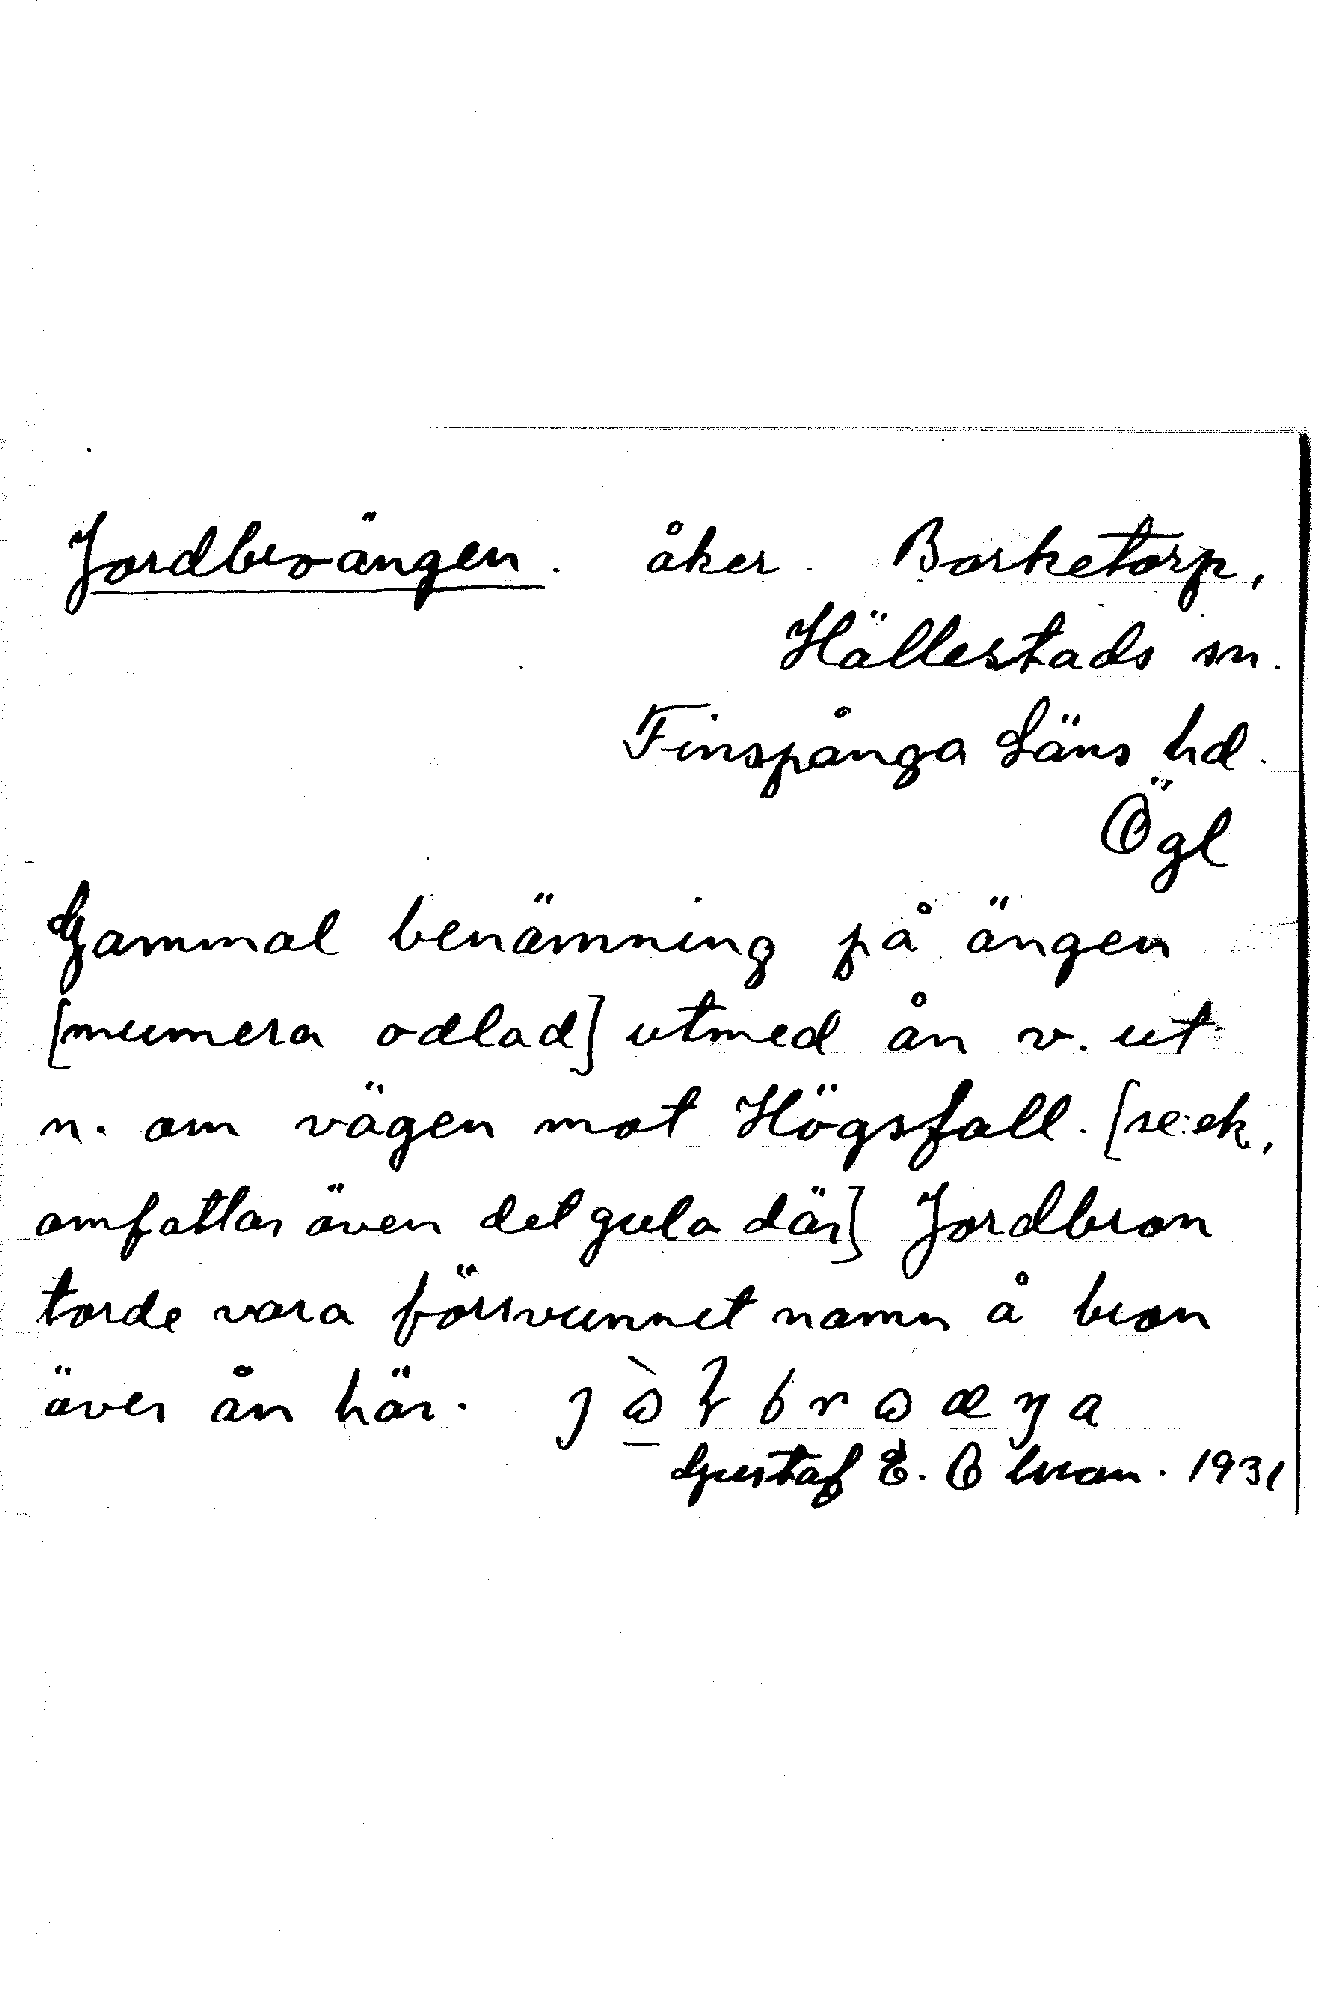 Jordbroängen. åker. Borketorp,
Hällestads sn.
Finspånga Läns hd.
Ögl
Gammal benämning på ängen
[numera odlad] utmed ån v. ut
n. om vägen mot Högsfall. [se ek,
omfattar även det gula där] Jordbron
torde vara försvunnet namn å bron
över ån här.
Gustaf E. Ohman. 1931